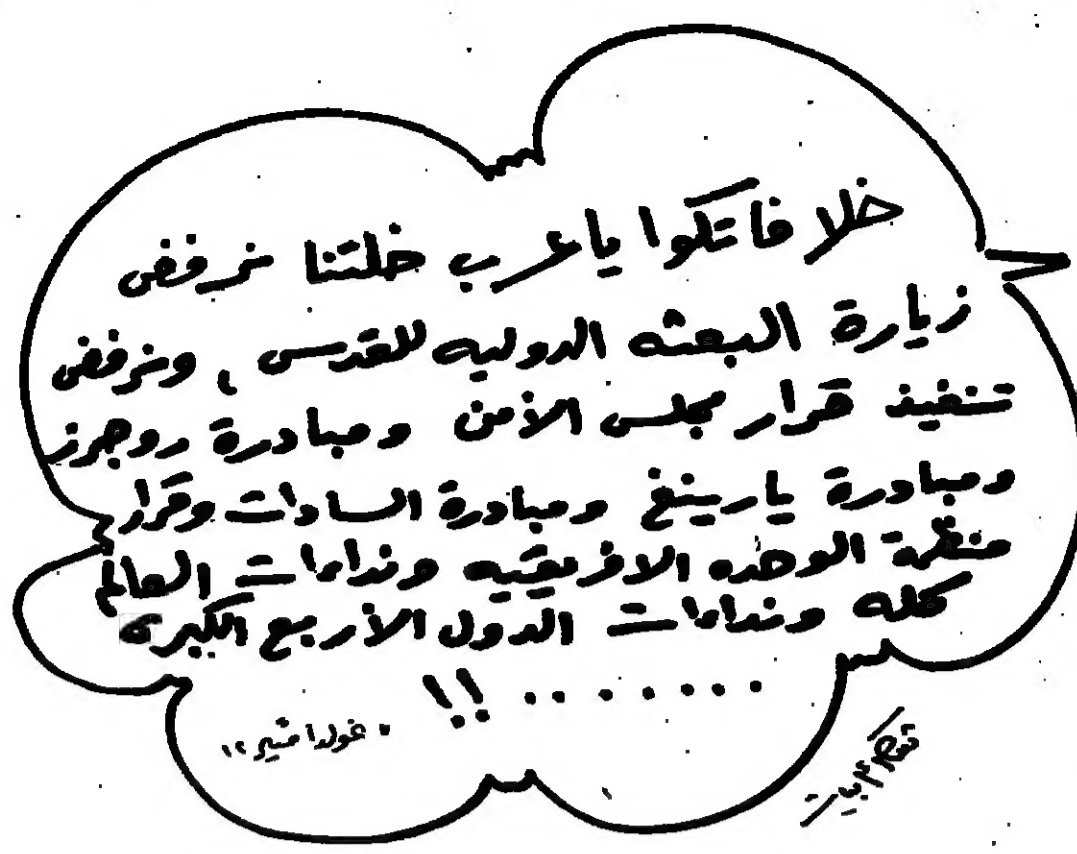 خلافاتكوا يا عرب خلتنا نرفض
زيارة البعثه الدوليه للقدس ، ونرفض
تنفيذ قرار مجلس الأمن ومبادرة روجرز
ومبادرة يارينغ ومبادرة السادات وقرار
منظمة الوحده الافريقيه ونداءات العالم
كله ونداءات الدول الأربع الكبرى
. . . . . . . !!
غولدا مئير